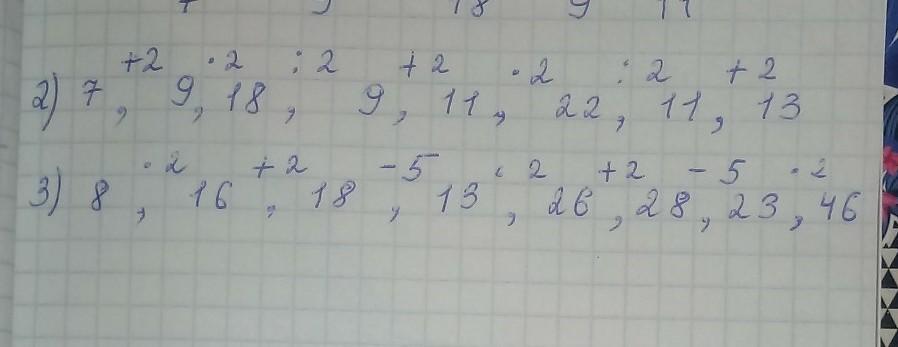 9 18 9 11
+2 · 2 : 2 + 2 · 2 : 2 + 2
2) 7, 9, 18, 9, 11, 22, 11, 13
· 2 + 2 - 5 · 2 + 2 - 5 · 2
3) 8, 16, 18, 13, 26, 28, 23, 46